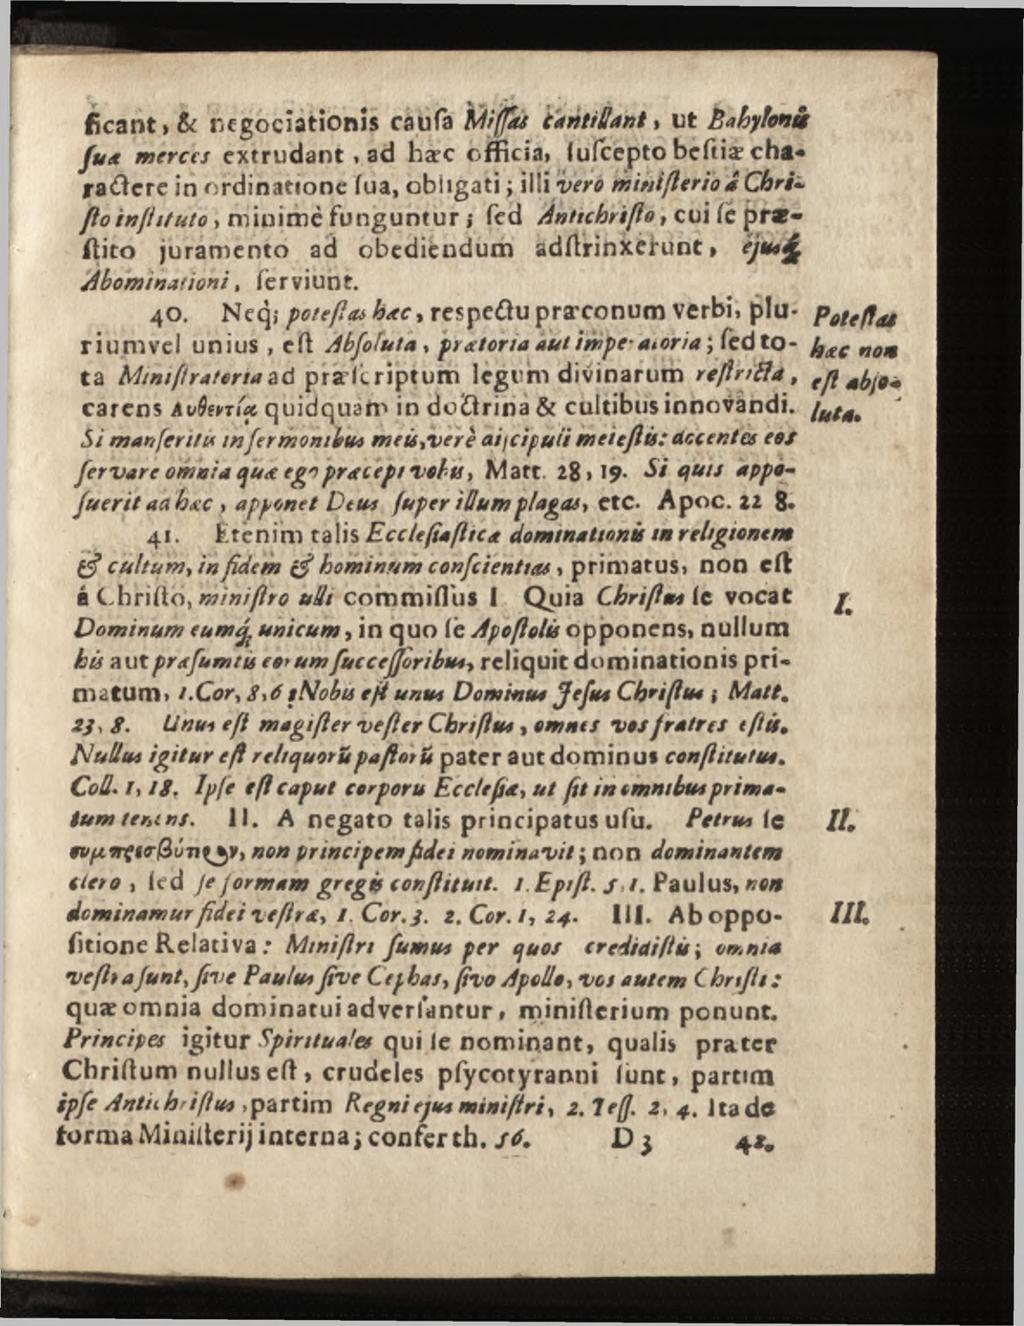 ficant, & negociationis cauſa Miſſas cantillant, ut Babylonis
ſuæ merces extrudant, ad hæc officia, ſuſcepto beſtiæ cha-
ractere in ordinatione ſua, obligati; illi vero miniſterio á Chri-
ſto inſtituto, minimè funguntur; ſed Antichriſto, cui ſe præ-
ſtito juramento ad obediendum adſtrinxerunt, ejusq́;
Abominationi, ſerviunt.
40. Neq; poteſtas hæc, reſpectu præconum verbi, plu-
riumvel unius, eſt Abſoluta, prætoria aut imperatoria; ſed to-
ta Miniſtratoria ad præſcriptum legum divinarum reſtricta,
carens Αυθεντίᾳ quidquam in doctrina & cultibus innovandi.
Si manſeritis in ſermonibus meis, verè diſcipuli mei eſtis: docentes eos
ſervare omnia quæ ego præcepi vobis, Matt. 28, 19. Si quis appo-
ſuerit ad hæc, apponet Deus ſuper illum plagas, etc. Apoc. 22 8.
Poteſtas
hæc non
eſt abſo-
luta.
41. Etenim talis Eccleſiaſticæ dominationis in religionem
& cultum, in fidem & hominum conſcientias, primatus, non eſt
á Chriſto, miniſtro ulli commiſſus I. Quia Chriſtus ſe vocat
Dominum eumq́; unicum, in quo ſe Apoſtolis opponens, nullum
his aut præſumtis eorum ſucceſſoribus, reliquit dominationis pri-
matum, 1. Cor, 8, 6 : Nobis eſt unus Dominus Jeſus Chriſtus; Matt.
23, 8. Unus eſt magiſter veſter Chriſtus, omnes vos fratres eſtis.
Nullus igitur eſt reliquorũ paſtorũ pater aut dominus conſtitutus.
Coll. 1, 18. Ipſe eſt caput corporis Eccleſiæ, ut ſit in omnibus prima-
tum tenens. II. A negato talis principatus uſu. Petrus ſe
συμπρεσβύτερον, non principem fidei nominavit; non dominantem
clero, ſed ſe formam gregis conſtituit. 1. Epiſt. 5. 1. Paulus, non
dominamur fidei veſtræ, 1. Cor. 3. 2. Cor. 1, 24. III. Ab oppo-
ſitione Relativa: Miniſtri ſumus per quos credidiſtis; omnia
veſtra ſunt, ſive Paulus ſive Cephas, ſivo Apollo, vos autem Chriſti:
quæ omnia dominatui adverſantur, miniſterium ponunt.
Principes igitur Spirituales qui ſe nominant, qualis præter
Chriſtum nullus eſt, crudeles pſycotyranni ſunt, partim
ipſe Antichriſtus, partim Regni ejus miniſtri, 2. Teſſ. 2, 4. Ita de
forma Miniſterij interna; confer th. 56. D 3 42.
I.
II.
III.